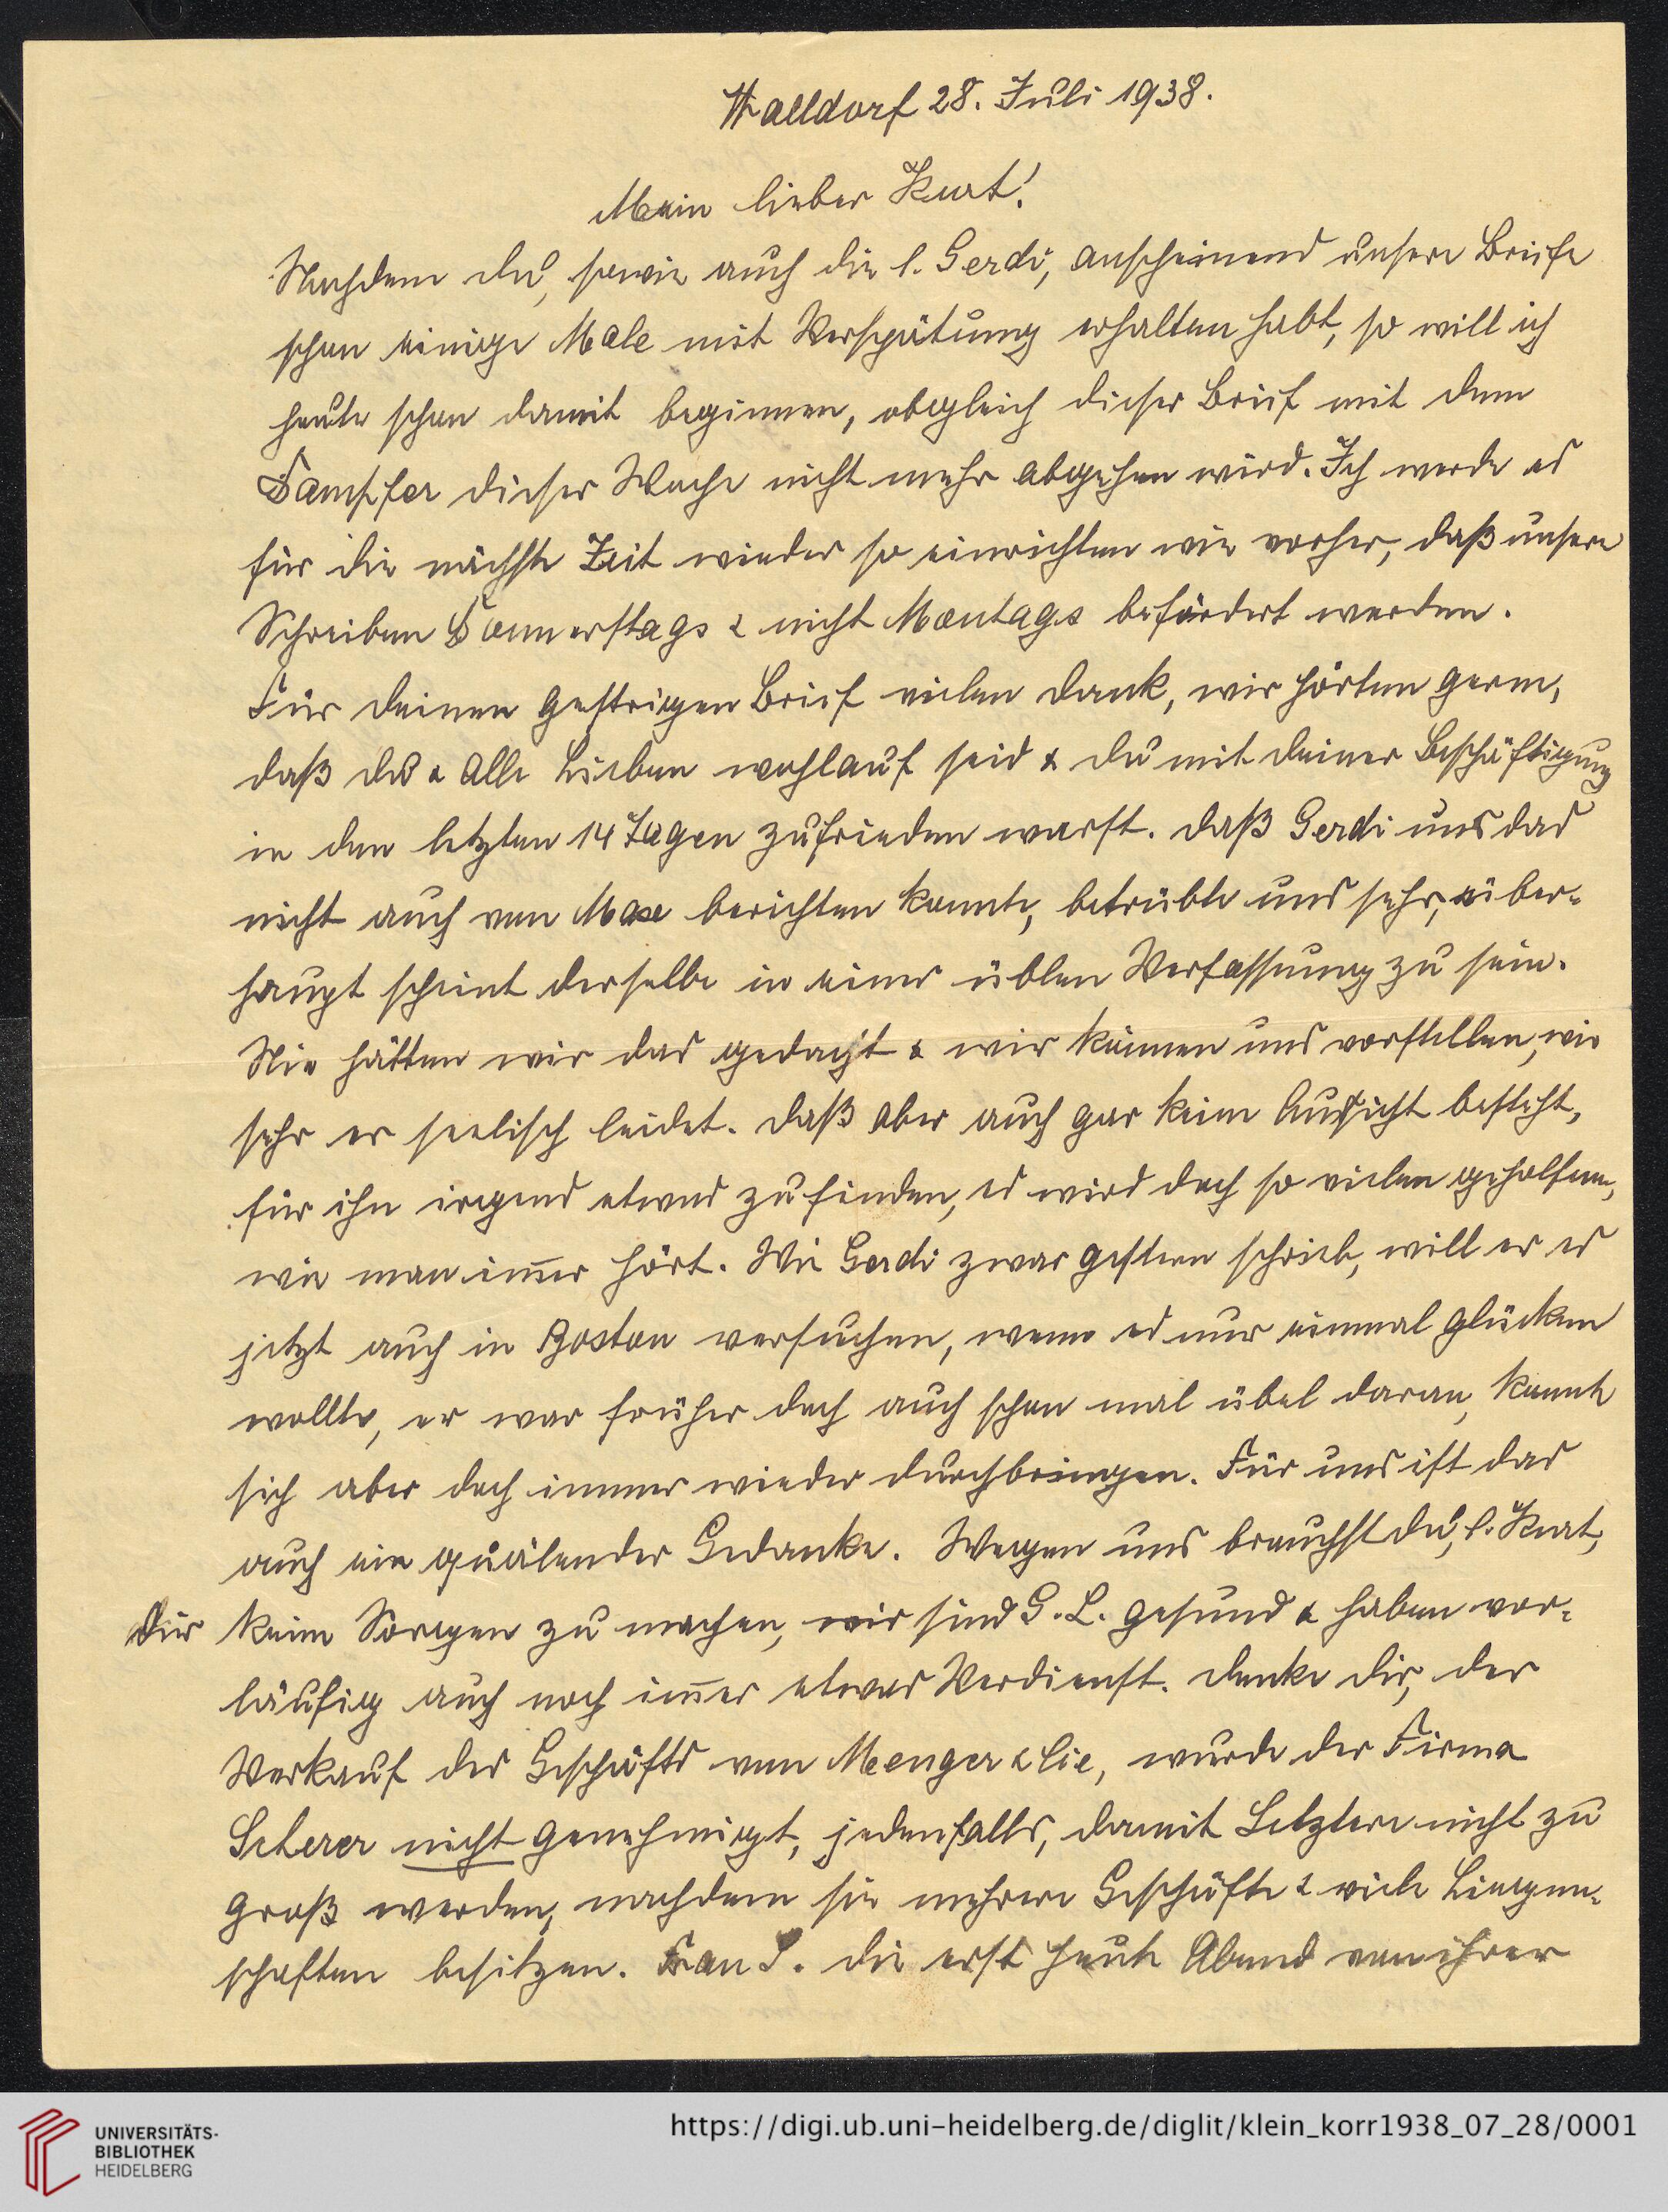 Walldorf 28. Juli 1938.
Mein lieber Kurt!
Nachdem du, sowie auch die l. Gerdi, anscheinend unsere Briefe
schon einige Male mit Verspätung erhalten habt, so will ich
heute schon damit beginnen, obgleich dieser Brief mit dem
Dampfer dieser Woche nicht mehr abgehen wird. Ich werde es
für die nächste Zeit wieder so einrichten wie vorher, daß unsere
Schreiben Donnerstags & nicht Montags befördert werden.
Für deinen gestrigen Brief vielen Dank, wir hörten gern,
daß du & alle Lieben wohlauf seid & du mit deiner Beschäftigung
in den letzten 14 Tagen zufrieden warst. Daß Gerdi uns das
nicht auch von Max berichten konnte, betrübte uns sehr, über-
haupt scheint derselbe in einer üblen Verfassung zu sein.
Nie hätten wir das gedacht & wir können uns vorstellen, wie
sehr er seelisch leidet. Daß aber auch gar keine Aussicht besteht,
für ihn irgend etwas zu finden, es wird doch so vielen geholfen,
wie man immer hört. Wie Gerdi zwar gestern schrieb, will er es
jetzt auch in Boston versuchen, wenn es nur einmal glücken
wollte, er war früher doch auch schon mal übel daran, konnte
sich aber doch immer wieder durchbringen. Für uns ist das
auch ein quälender Gedanke. Wegen uns brauchst du, l. Kurt,
dir keine Sorgen zu machen, wir sind G. L. gesund & haben vor-
läufig auch noch immer etwas Verdienst. Denke dir, der
Verkauf des Geschäfts von Menger & Cie, wurde der Firma
Scherer nicht genehmigt, jedenfalls, damit Letztere nicht zu
groß werden, nachdem sie mehrere Geschäfte & viele Liegen-
schaften besitzen. Frau S. die erst heute Abend von ihrer
UNIVERSITÄTS-
BIBLIOTHEK
HEIDELBERG
https://digi.ub.uni-heidelberg.de/diglit/klein_korr1938_07_28/0001